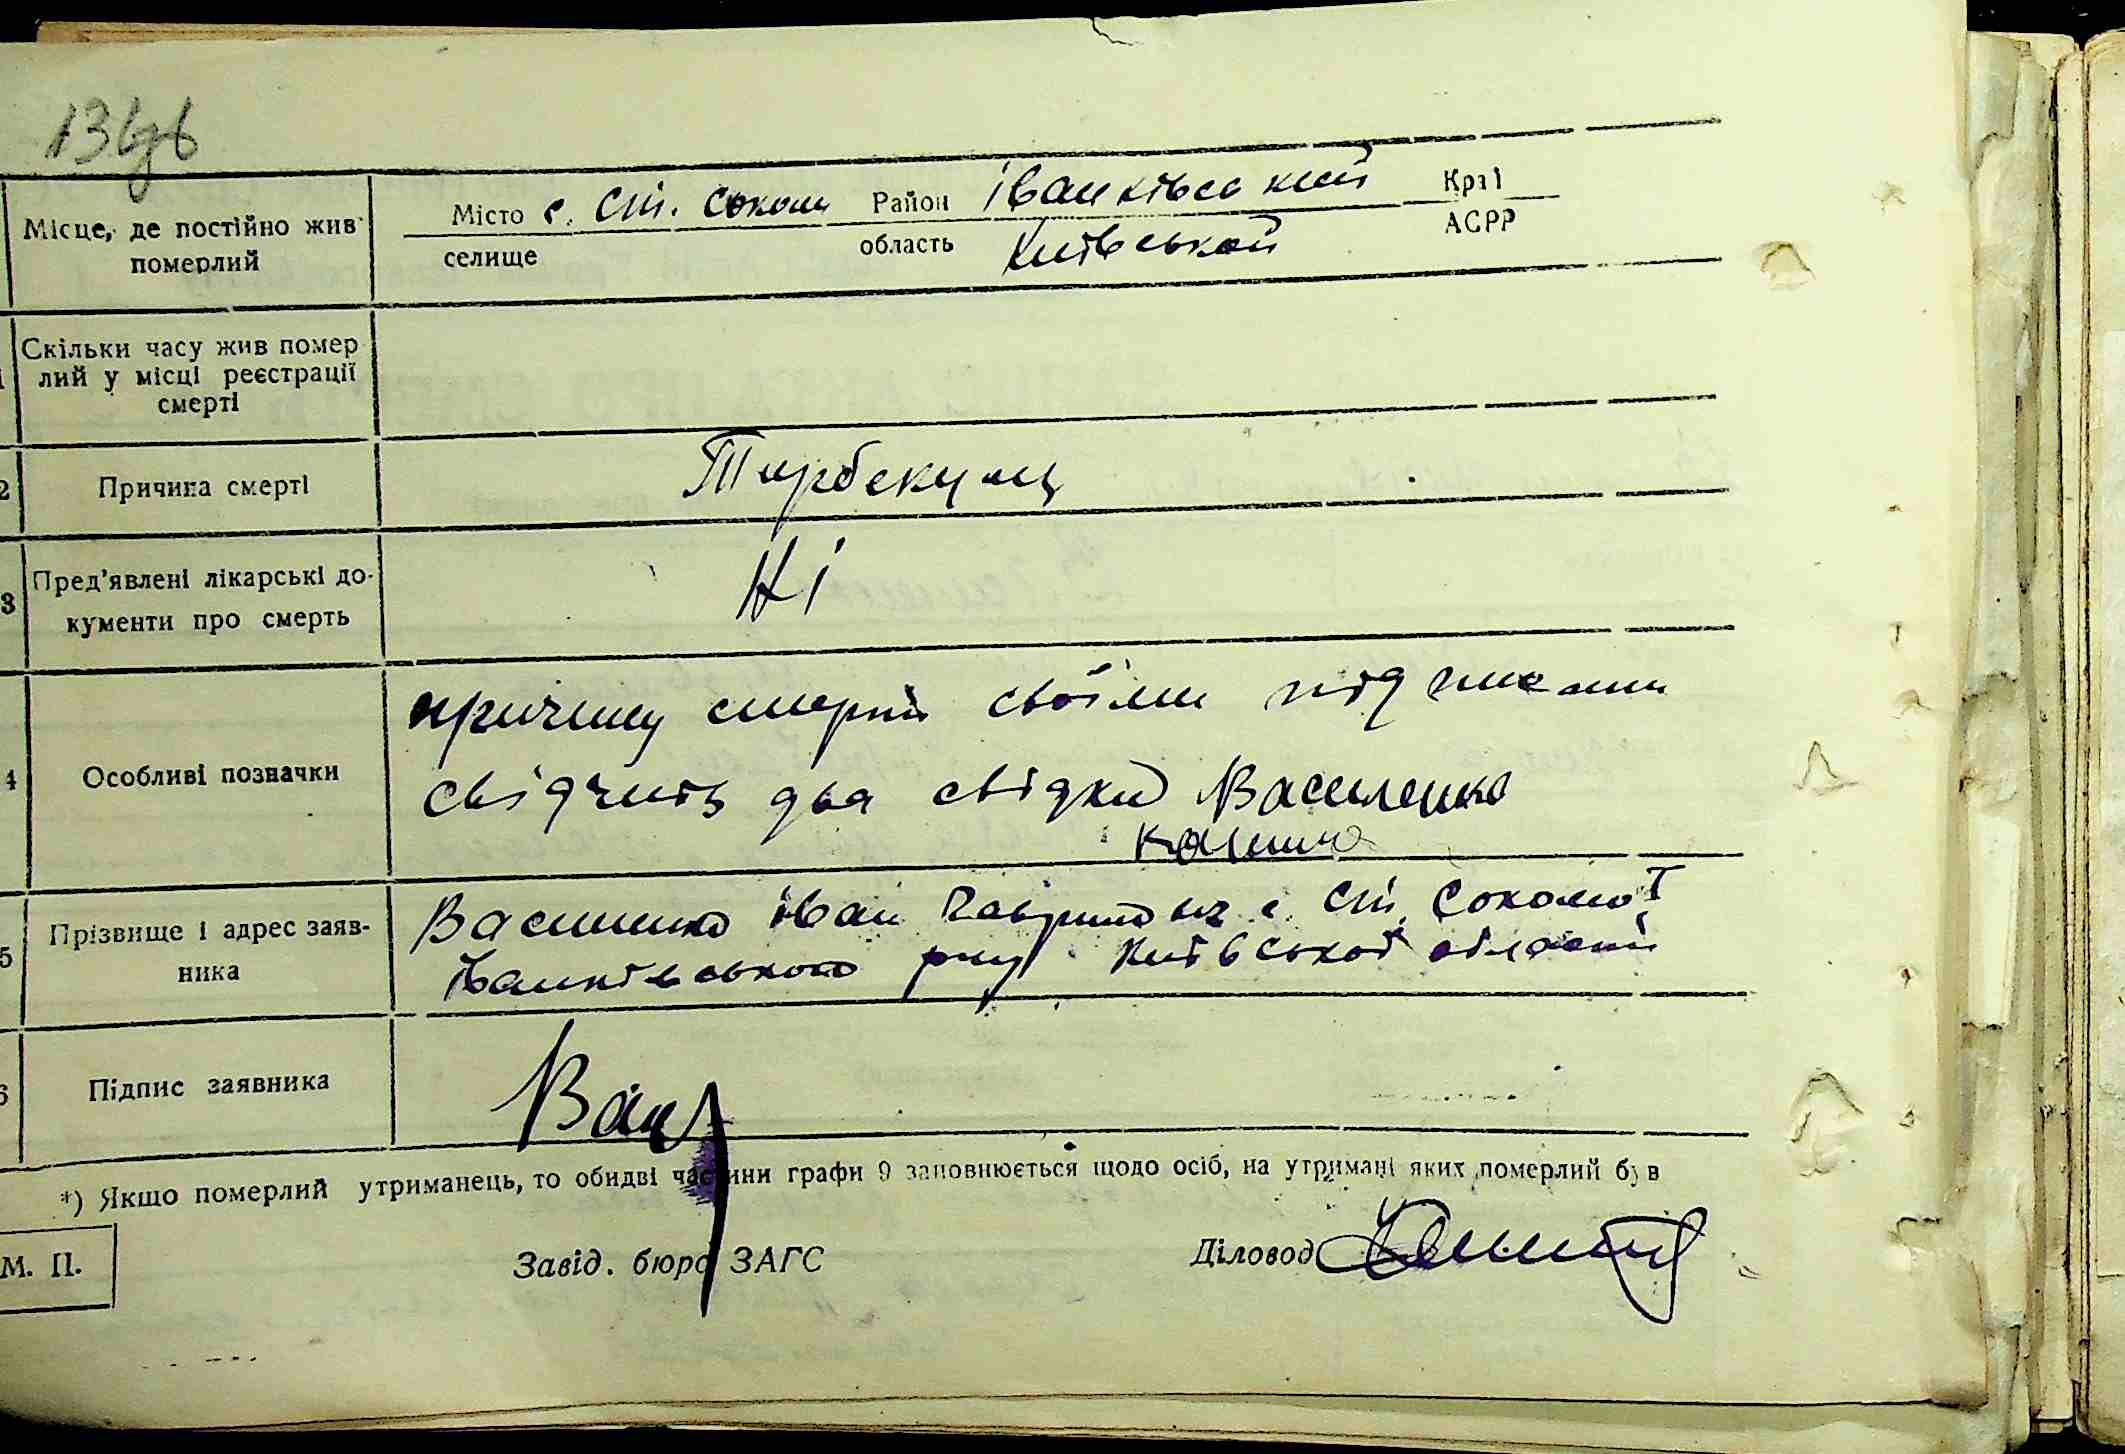 Місце, де постійно жив померлий
Місто с. Ст. Соколи Район Іванківський Край
селище область Київської АСРР
1 Скільки часу жив помер
лий у місці реєстрації
смерті
2 Причина смерті
3 Пред'явлені лікарські до-
кументи про смерть
Ні
4 Особливі позначки
причину смерті своїми підписами
свідчить два свідки Василенко
5 Прізвище і адрес заяв-
ника
Василенко Іван с. Ст. Соколи
Іванківського р-ну Київської області
6 Підпис заявника
*) Якщо померлий утриманець, то обидві частини графи 9 заповнюється щодо осіб, на утримані яких померлий був
М. П.
Завід. бюро ЗАГС Діловод